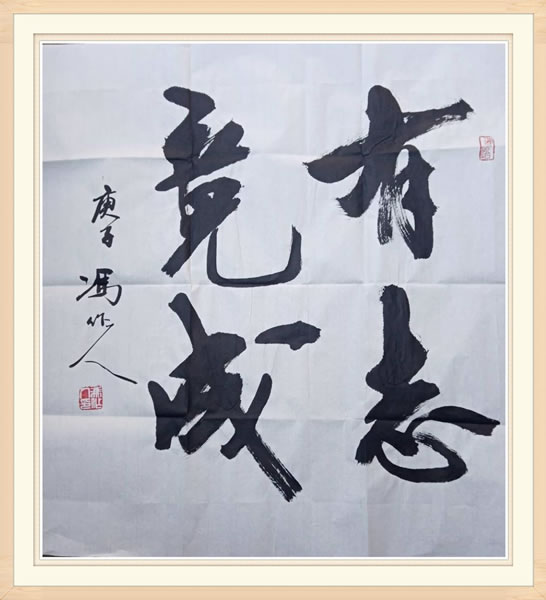 有志
竟成
庚子
馮作人